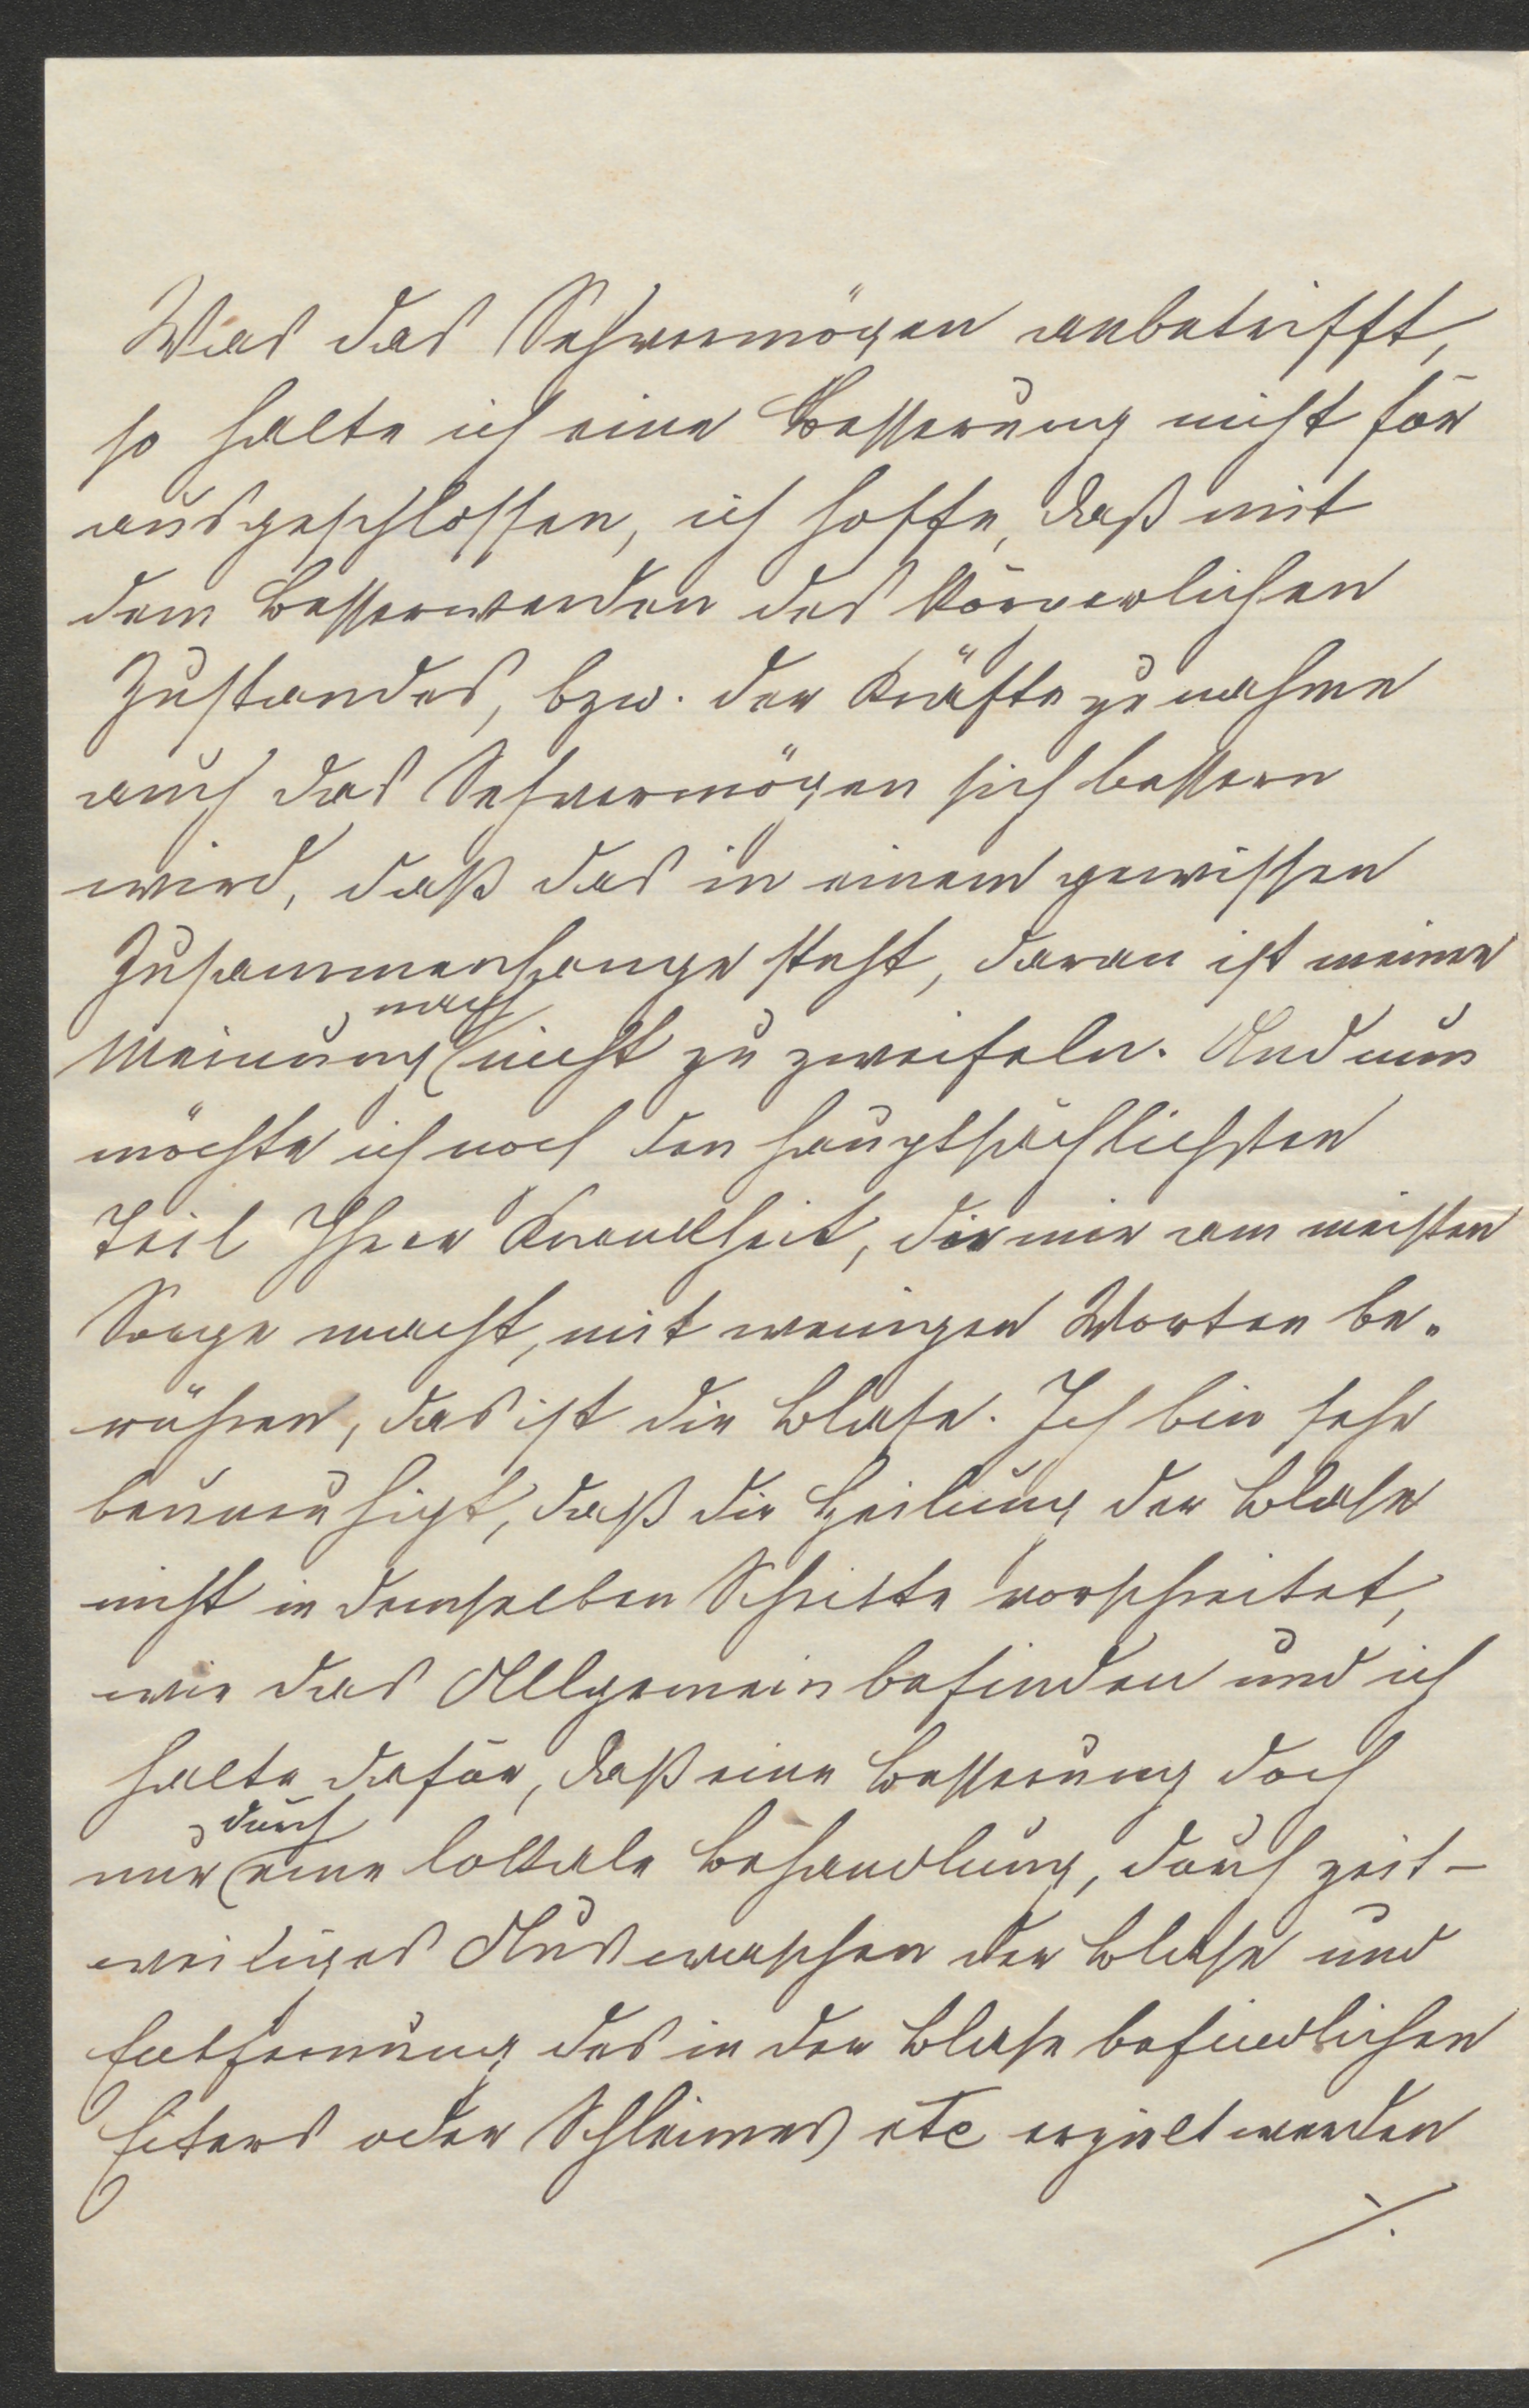 Was das Sehvermögen anbetrifft,
so halte ich eine Besserung nicht für
ausgeschlossen, ich hoffe, daß mit
dem Besserwerden des körperlichen
Zustandes, bzw. der Kräftezunahme
auch das Sehvermögen sich bessern
wird, daß das in einem gewissen
Zusammenhange steht, daran ist meiner
nach
Meinung nicht zu zweifeln. Und nun
möchte ich noch den hauptsächlichsten
Teil Ihrer Krankheit, die mir am meisten
Sorge macht, mit wenigen Worten be-
rühren, das ist die Blase. Ich bin sehr
beunruhigt, daß die Heilung der Blase
nicht in demselben Schritte vorschreitet,
wie das Allgemeinbefinden und ich
halte dafür, daß eine Besserung doch
durch
nur eine lokale Behandlung, durch zeit-
weiliges Auswaschen der Blase und
Entfernung des in der Blase befindlichen
Eiters oder Schleimes etc erzielt werden
./.